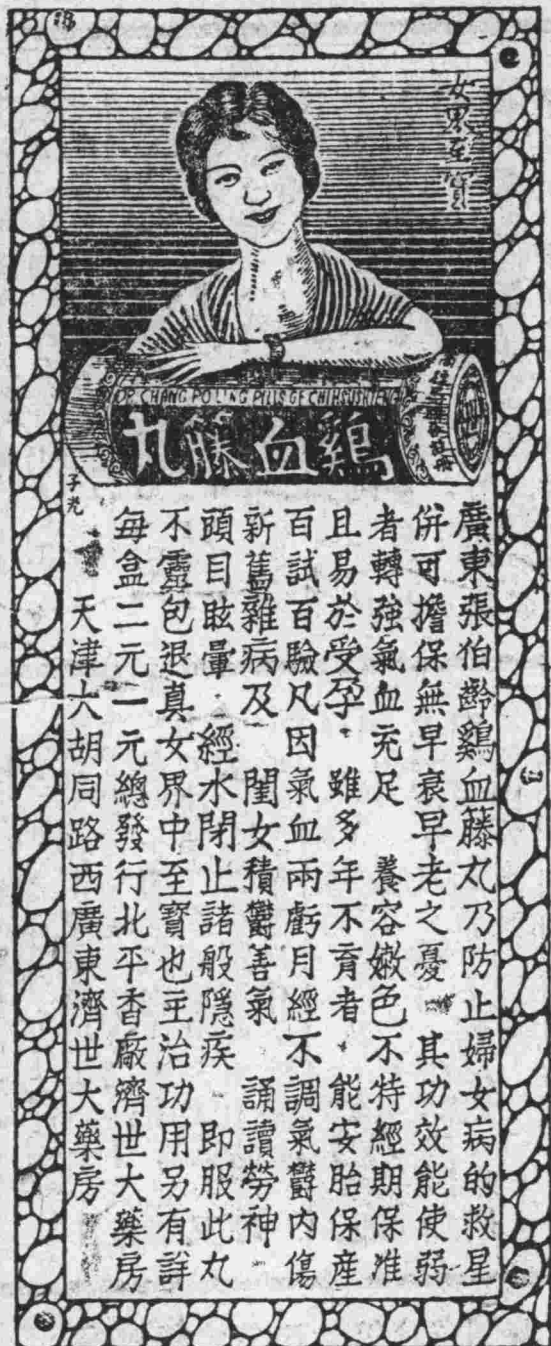 女界至寶
DR. CHANG POLING PILLS OF CHIHSUSHTENG
鷄血藤丸
子光
廣東張伯齡鷄血藤丸乃防止婦女病的救星
併可擔保無早衰早老之憂 其功效能使弱
者轉強氣血充足 養容嫩色不特經期保准
且易於受孕 雖多年不育者 能安胎保產
百試百驗凡因氣血兩虧月經不調氣欝內傷
新舊雜病及 閨女積欝善氣 誦讀勞神
頭目眩暈 經水閉止諸般隱疾 即服此丸
不靈包退真女界中至寶也主治功用另有詳
每盒二元一元總發行北平香廠濟世大藥房
天津大胡同路西廣東濟世大藥房